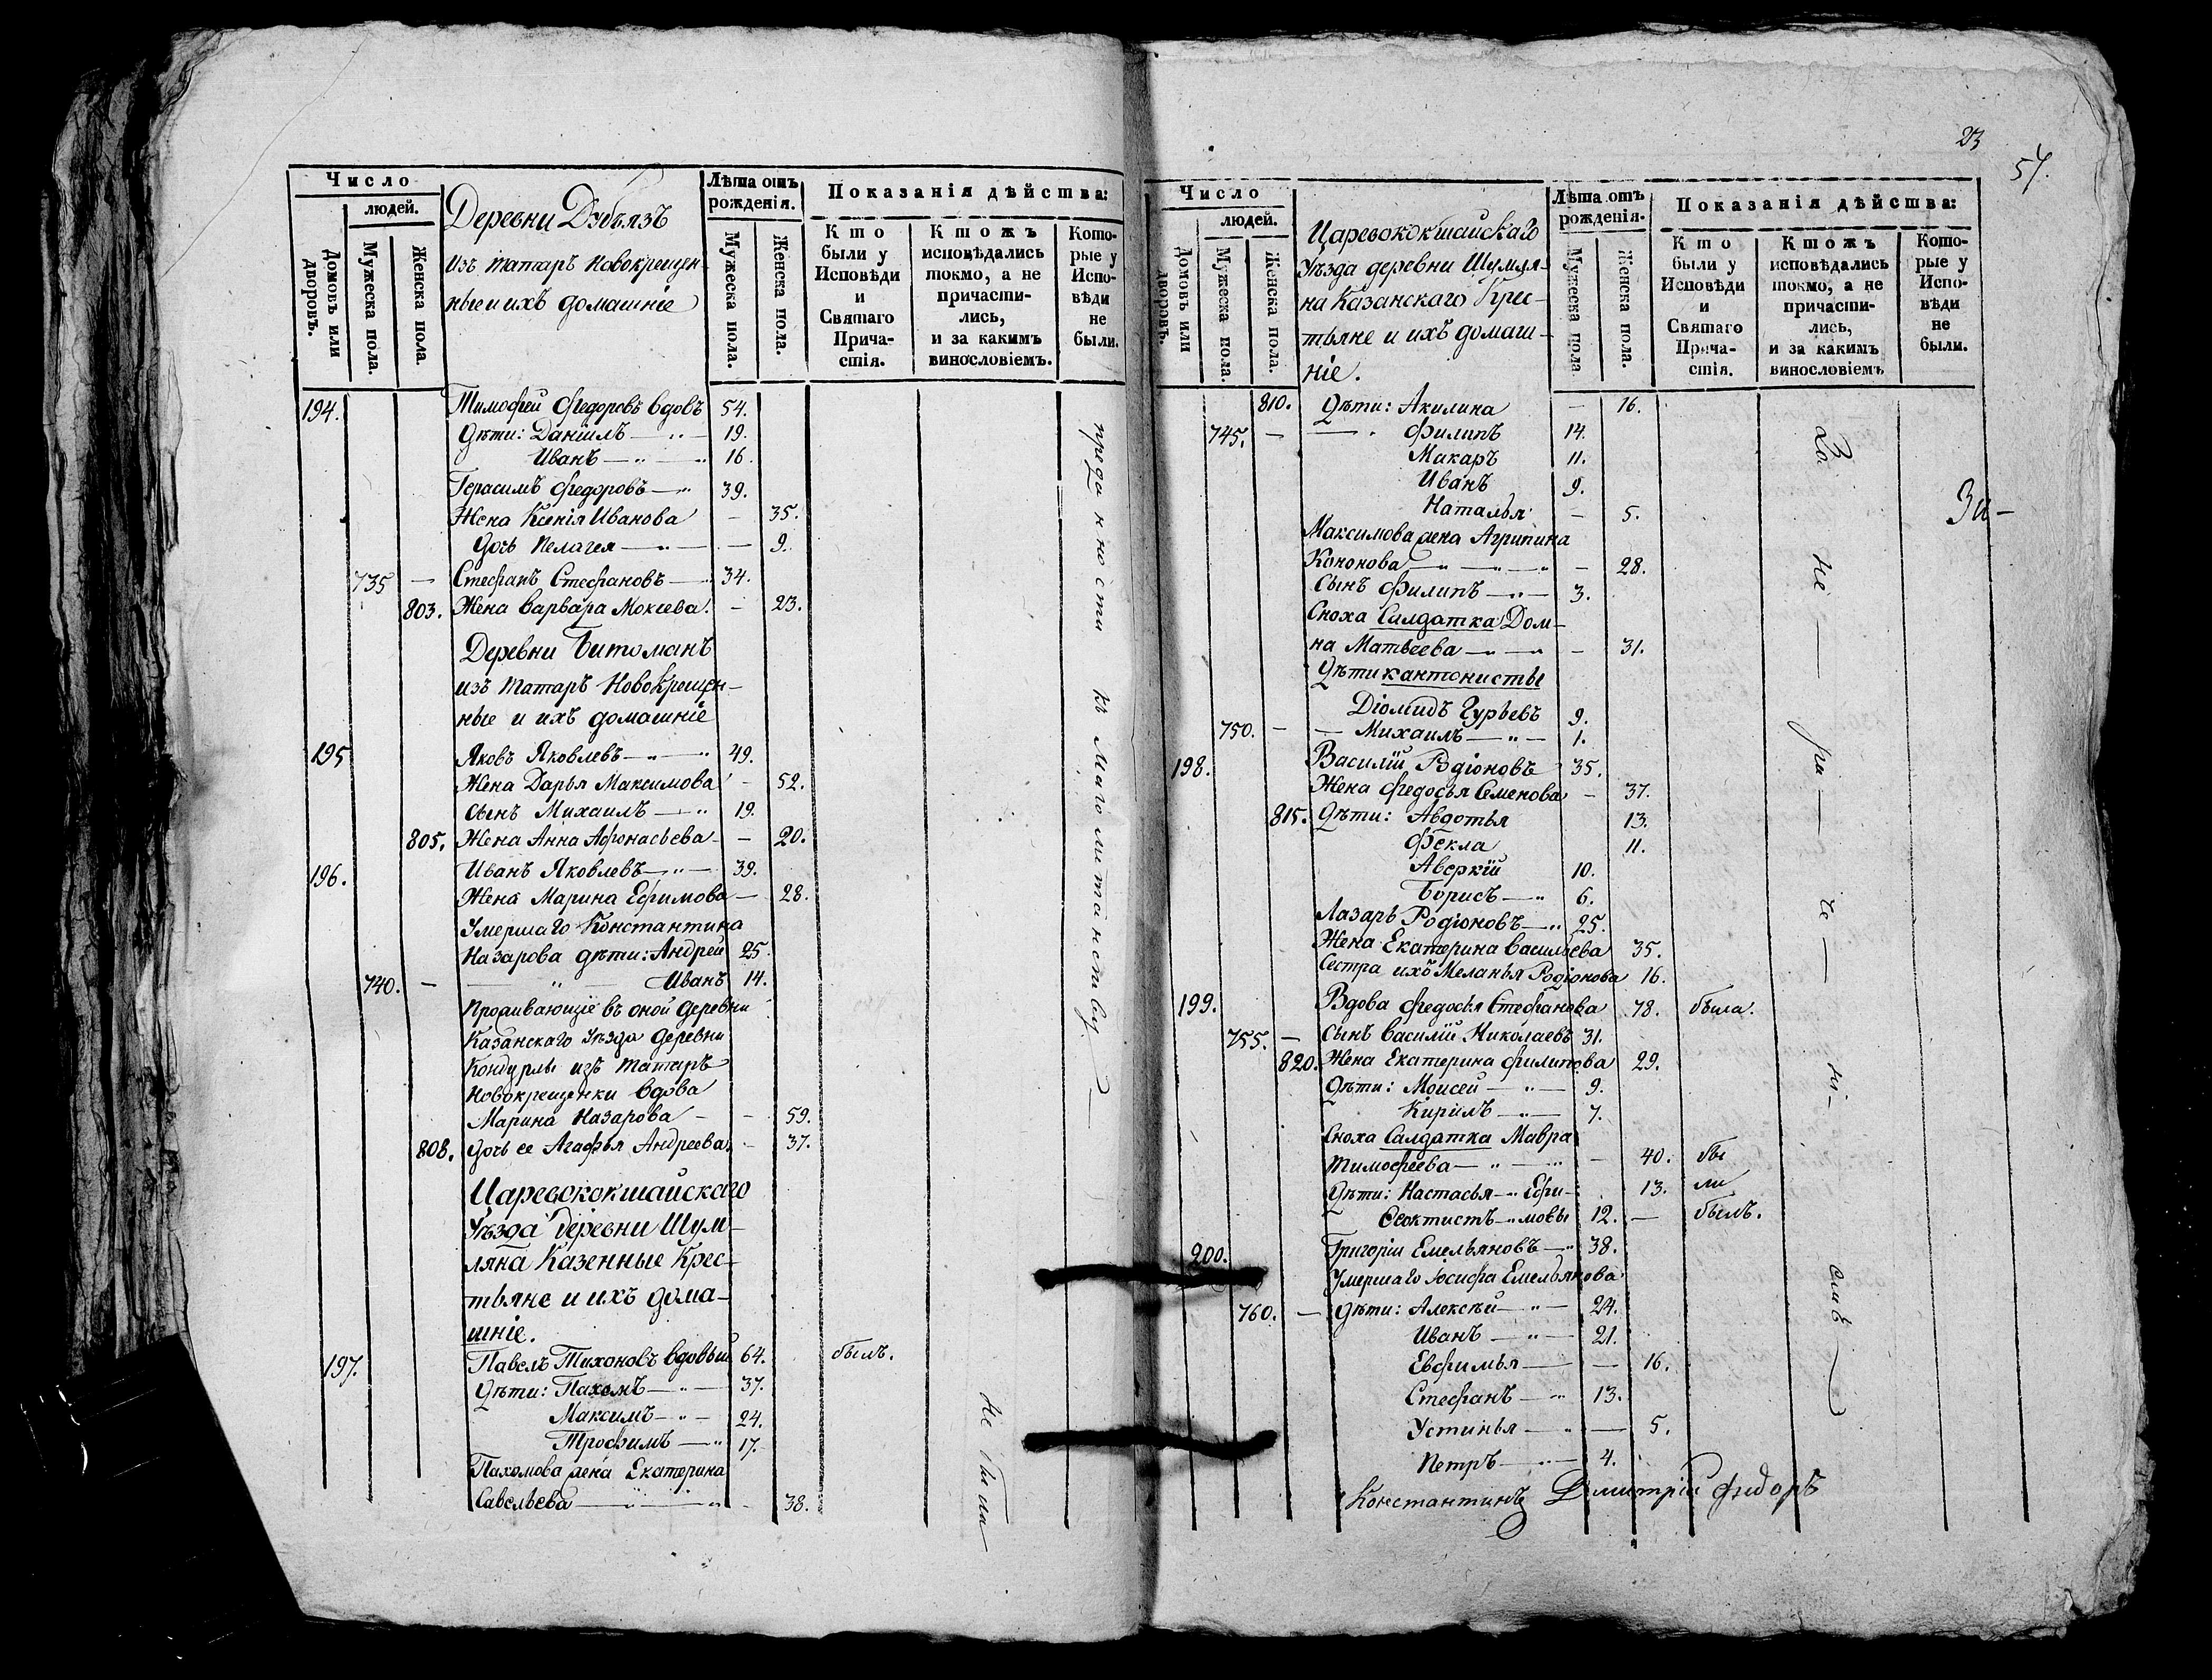 Число
людей.
Домовъ или дворовъ.
Мужеска пола.
Женска пола.
Деревни Дубъязъ
изъ татаръ новокрещен-
ные и ихъ домашніе
Лѣта отъ рожденія.
Мужеска пола.
Женска пола.
Показанія дѣйства:
Кто были у Исповѣди и Святаго Причастія.
Ктожъ исповѣдались токмо, а не причастились, и за какимъ винословіемъ.
Которые у Исповѣди не были.
194. Тимофей Федоровъ вдовъ 54.
Дѣти: Даніилъ 19.
Иванъ 16.
Герасимъ Федоровъ 39.
Жена Ксенія Иванова — 35.
Дочь Пелагея — 9.
735 — Стефанъ Стефановъ 34.
803. Жена Варвара Мокеева. — 23.
Деревни Битоманъ
изъ татаръ новокрещен-
ные и ихъ домашніе
195 Яковъ Яковлевъ 49.
Жена Дарья Максимова — 52.
Сынъ Михаилъ 19.
805. Жена Анна Афонасьева — 20.
196. Иванъ Яковлевъ 39.
Жена Марина Ефимова — 28.
Умершаго Константина
Назарова дѣти: Андрей 25.
740. — Иванъ 14.
Проживающіе въ оной деревни
Казанскаго уѣзда деревни
Кондурлы изъ татаръ
новокрещенки вдова
Марина Назарова — 59.
808. дочь ее Агафья Андреева — 37.
Царевококшайскаго
уѣзда деревни Шум-
ляна Казенные Крес-
тьяне и ихъ дома-
шніе.
197. Павелъ Тихоновъ вдовый 64. былъ.
Дѣти: Пахомъ 37.
Максимъ 24.
Трофимъ 17.
Пахомова жена Екатерина
Савельева — 38.
преда н но сти къ Маго ме танству
не бы
23
57.
Число
людей.
Домовъ или дворовъ.
Мужеска пола.
Женска пола.
Царевококшайскаго
Уѣзда деревни Шумля-
на Казанскаго Крес-
тьяне и ихъ домаш-
ніе.
Лѣта отъ рожденія.
Мужеска пола
Женска пола.
Показанія дѣйства:
Кто были у Исповѣди и Святаго Причастія.
Ктожъ исповѣдались токмо, а не причастились, и за какимъ винословіемъ
Которые у Исповѣди не были.
810. Дѣти: Акилина — 16.
745. — Филипъ 14.
Макаръ 11.
Иванъ 9.
Наталья — 5.
Максимова жена Агрипина
Кононова — 28.
Сынъ Филипъ 3.
Сноха Салдатка Дом-
на Матвеева — 31.
Дѣти кантонисты
Діомидъ Гурьевъ 9.
750. — Михаилъ 1.
198. Василій Родіоновъ 35.
Жена Федосья Семенова — 37.
815. Дѣти: Авдотья 13.
Фекла 11.
Аверкій 10.
Борисъ 6.
Лазаръ Родіоновъ 25.
Жена Екатерина Васильева 35.
Сестра ихъ Меланья Родіонова 16.
199. Вдова Федосья Стефанова 78. была.
755. — Сынъ Василій Николаевъ 31.
820. Жена Екатерина Филипова 29.
Дѣти: Моисей 9.
Кирилъ 7.
Сноха Салдатка Мавра
Тимофеева — 40. бы
Дѣти: Настасья Ефи- 13. ли
Феоктистъ мовы 12. — былъ.
200. Григорій Емельяновъ 38.
Умершаго Іосифа Емельянова
760. — Дѣти: Алексѣй 24.
Иванъ 21.
Евфимья — 16.
Стефанъ 13.
Устинья — 5.
Петръ 4.
Константинъ Димитрій Фидоръ